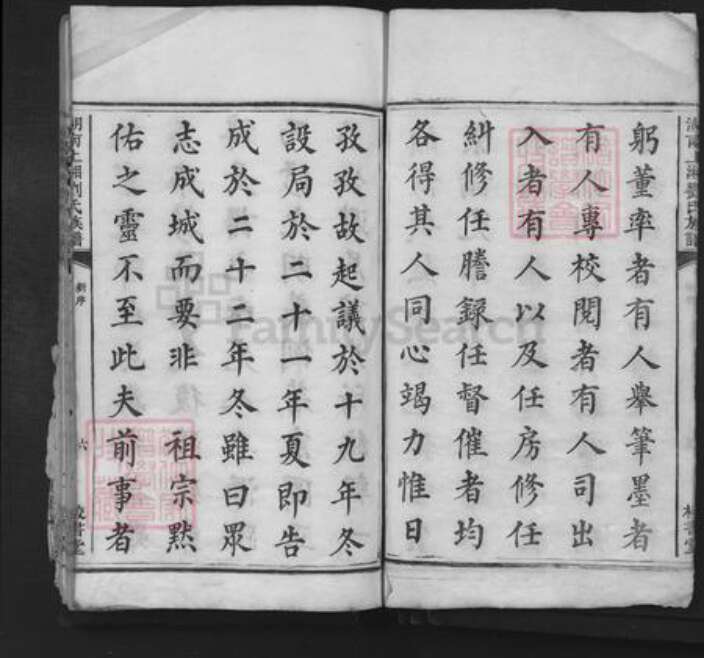 躬董率者有人舉筆墨者
有人專校閱者有人司出
入者有人以及任房修任
糾修任謄録任督催者均
各得其人同心竭力惟日
孜孜故起議於十九年冬
設局於二十一年夏即告
成於二十二年冬雖曰眾
志成城而要非 祖宗默
佑之靈不至此夫前事者
湖南上湘劉氏族譜
新序
六
FamilySearch